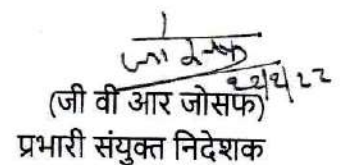 २२/२/२२
(जी वी आर जोसफ)
प्रभारी संयुक्त निदेशक